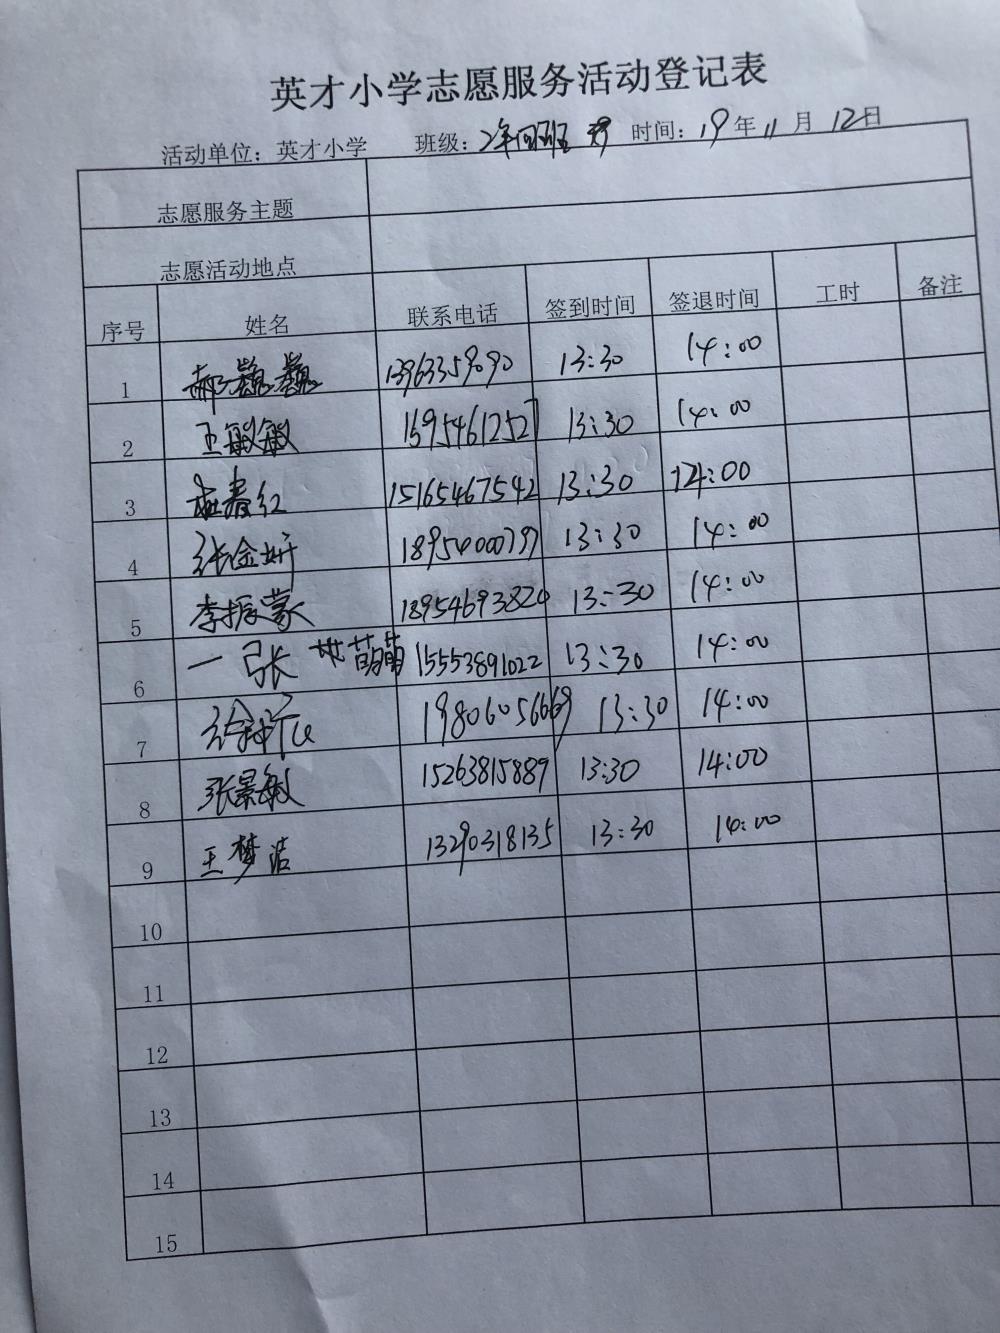 英才小学志愿服务活动登记表
活动单位：英才小学 班级：2年四班 时间：19年11月12日
志愿服务主题
志愿活动地点
序号 姓名 联系电话 签到时间 签退时间 工时 备注
1 郝巍巍 13963359090 13:30 14:00
2 王敏敏 15954612527 13:30 14:00
3 春红 15165467542 13:30 14:00
4 张金妍 18954000797 13:30 14:00
5 李振蒙 18954693820 13:30 14:00
6 张 萌萌 15553891022 13:30 14:00
7 19806056669 13:30 14:00
8 张景敏 15263815889 13:30 14:00
9 王梦洁 13290318135 13:30 14:00
10
11
12
13
14
15